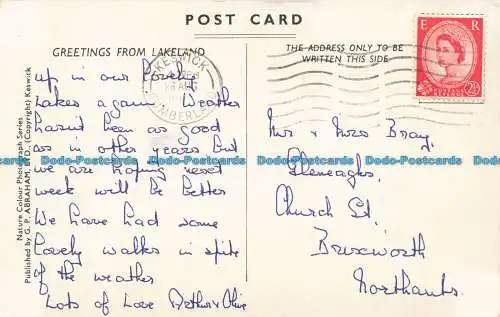 POST CARD
GREETINGS FROM LAKELAND
up in our lovely
Lakes again. Weather
hasn't been as good
as in other years but
we are hoping next
week will be better
We have had some
lovely walks in spite
of the weather
Lots of Love Arthur & Olive
Nature Colour Photograph Series
Published by G. P. ABRAHAM, LTD., (Copyright) Keswick
KESWICK
CUMBERLAND
THE ADDRESS ONLY TO BE
WRITTEN THIS SIDE
E R
POSTAGE REVENUE
2½D
Mr & Mrs Bray,
Gleneagles,
Church St.
Brixworth
Northants.
Dodo-Postcards Dodo-Postcards Dodo-Postcards
Dodo-Postcards Dodo-Postcards Dodo-Postcards
Dodo-Postcards Dodo-Postcards Dodo-Postcards